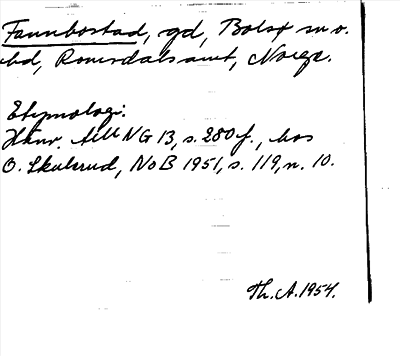 Fannbostad, gd, Bolsø sn o.
hd, Romsdals amt, Norge.
Etymologi:
Hänv. till NG 13, s. 280 f., hos
O. Skulerud, NoB 1951, s. 119, n. 10.
Th. A. 1954.